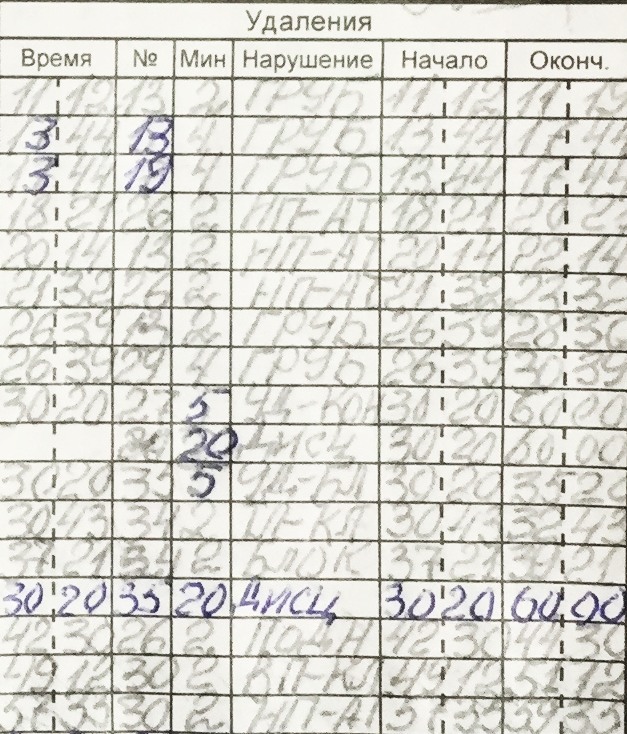 Удаления
Время № Мин Нарушение Начало Оконч.
11 12 13 2 ГРУБ 11 12
3 44 13 4 ГРУБ 13 44 17 44
3 44 19 4 ГРУБ 13 44 17 44
18 21 26 2 НП-АТ 18 21 20 21
20 14 13 2 НП-АТ 20 14 22 14
21 32 26 2 НП-АТ 21 32 23 32
26 39 13 2 ГРУБ 26 39 28 39
26 39 29 4 ГРУБ 26 39 30 39
30 20 27 5 30 20 60 00
20 Дисц 30 20 60 00
30 20 35 5 30 20 35 20
30 43 34 2 30 43 32 43
37 21 34 2 БЛОК 37 21 39 21
30 20 35 20 Дисц 30 20 60 00
42 30 26 2 30 44 30
49 12 30 2 49 12 51 12
30 2 НП-А